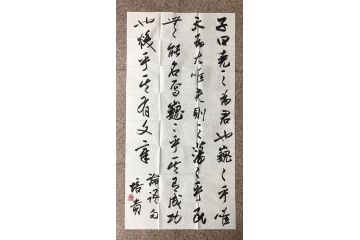 子曰堯之為君也巍々乎唯
天為大唯堯則之蕩々乎民
無能名焉巍々乎其有成功
也煥乎其有文章
論語句
培貴